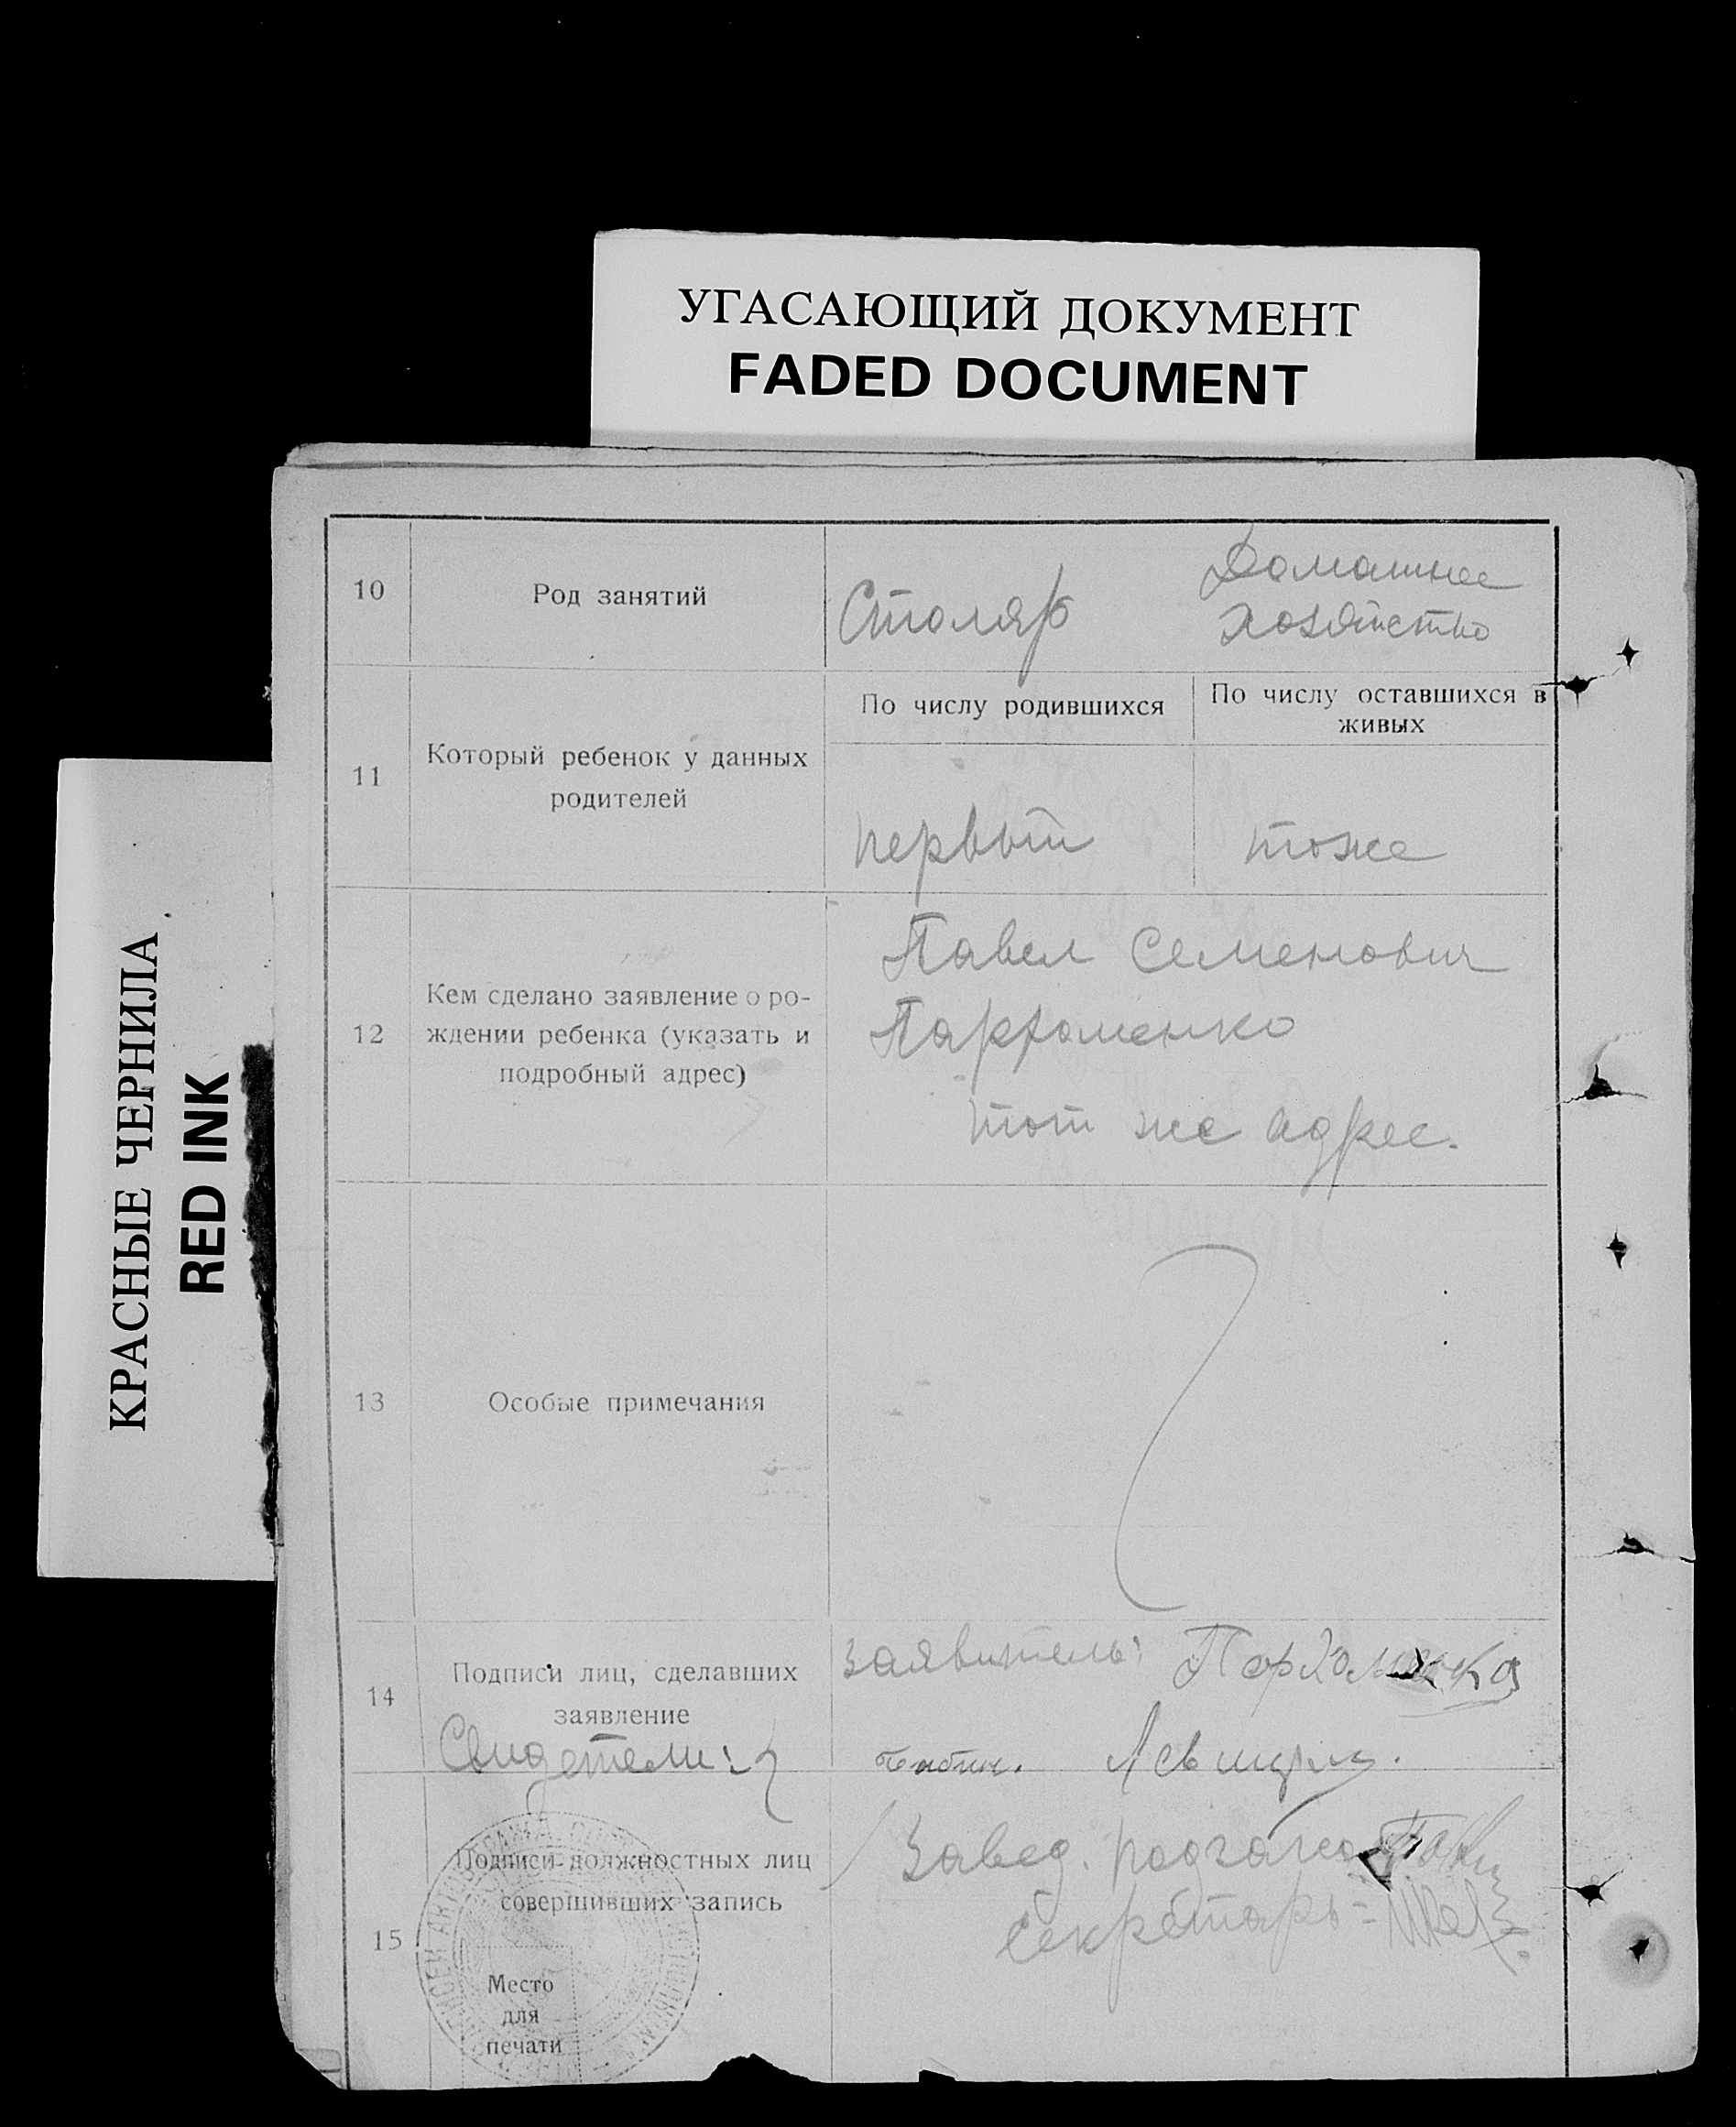 УГАСАЮЩИЙ ДОКУМЕНТ
FADED DOCUMENT
КРАСНЫЕ ЧЕРНИЛА
RED INK
10
Род занятий
Столяр
Домашнее
хозяйство
11
Который ребенок у данных
родителей
По числу родившихся
По числу оставшихся в
живых
первый
тоже
12
Кем сделано заявление о ро-
ждении ребенка (указать и
подробный адрес)
Павел Семенович
Пархоменко
тот же адрес.
13
Особые примечания
14
Подписи лиц, сделавших
заявление
Свидетели:
заявитель: Пархоменко
15
Подписи должностных лиц
совершивших запись
Место
для
печати
Завед.
Секретарь